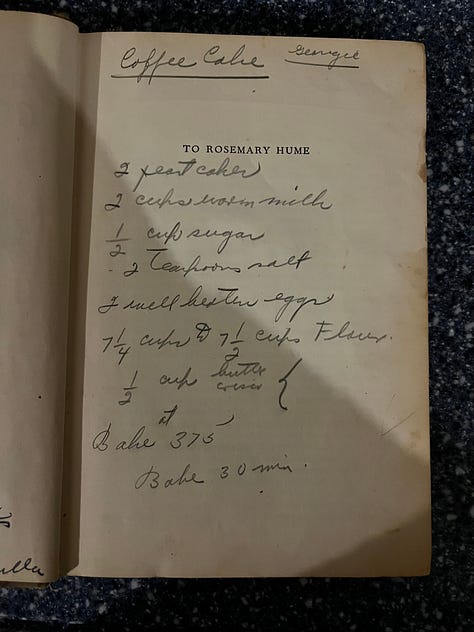 Coffee Cake Georgie
TO ROSEMARY HUME
2 yeast cakes
2 cups warm milk
1/2 cup sugar
2 Teaspoons salt
2 well beaten eggs
7 1/4 cups to 7 1/2 cups Flour.
1/2 cup butter
crisco
Bake at 375
Bake 30 min.